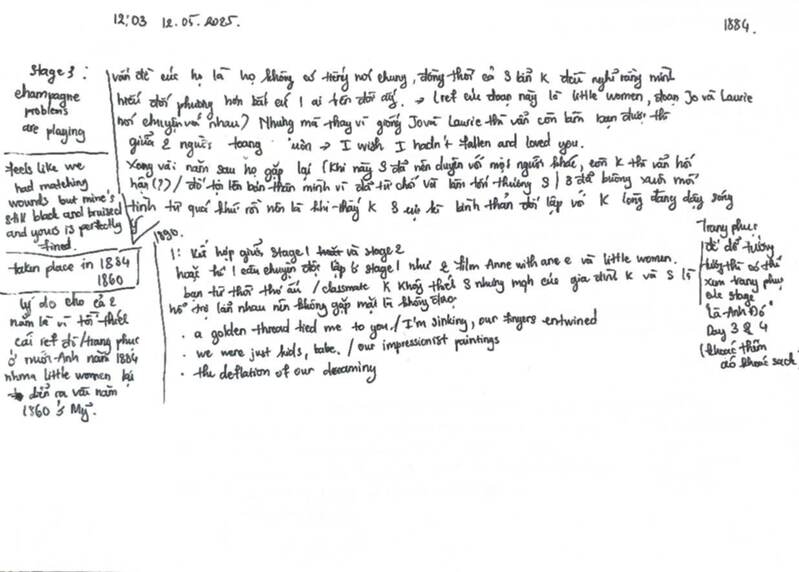 12:03 12.05.2025.
1884.
Stage 3:
champagne
problems
are playing
feels like we
had matching
wounds but mine's
still black and bruised
and yours is perfectly
fined.
taken place in 1884
1860
lý do cho cả 2
năm là vì tôi thiết
cái ref đồ/trang phục
ở nước Anh năm 1884
nhma little women lại
diễn ra vài năm
1860 ở Mỹ.
vấn đề của họ là họ không có tiếng nói chung, đồng thời cả S lẫn K đều nghĩ rằng mình
hiểu đối phương hơn bất cứ 1 ai trên đời ấy. → (ref của đoạn này là little women, đoạn Jo và Laurie
nói chuyện với nhau) Nhưng mà thay vì giống Jo và Laurie thì vẫn còn làm bạn được thì
giữa 2 người toang luôn → I wish I hadn't fallen and loved you.
Xong vài năm sau họ gặp lại (Khi này S đã nên duyên với một người khác, còn K thì vẫn hối
hận(?)/ đổ tội lên bản thân mình vì đã từ chối và làm tổn thương S) S đã buông xuôi mối
tình từ quá khứ rồi nên là khi thấy K S cực kì bình thản đối lập với K lòng đang dậy sóng
1890.
1: Kết hợp giữa Stage 1 và stage 2
hoặc từ 1 câu chuyện độc lập ở stage 1 như 2 film Anne with an e và little women.
bạn từ thời thơ ấu / classmate K không thích S nhưng mqh của gia đình K và S là
hỗ trợ lẫn nhau nên không gặp mặt là không được
. a golden thread tied me to you./I'm sinking, our fingers entwined
. we were just kids, babe. / our impressionist paintings
. the deflation of our dreaming
Trang phục
đi để tưởng
tượng thì có thể
xem trang phục
của stage
"Lá Anh Đỏ"
Day 3 & 4
(khoác thêm
áo khoác sạch)